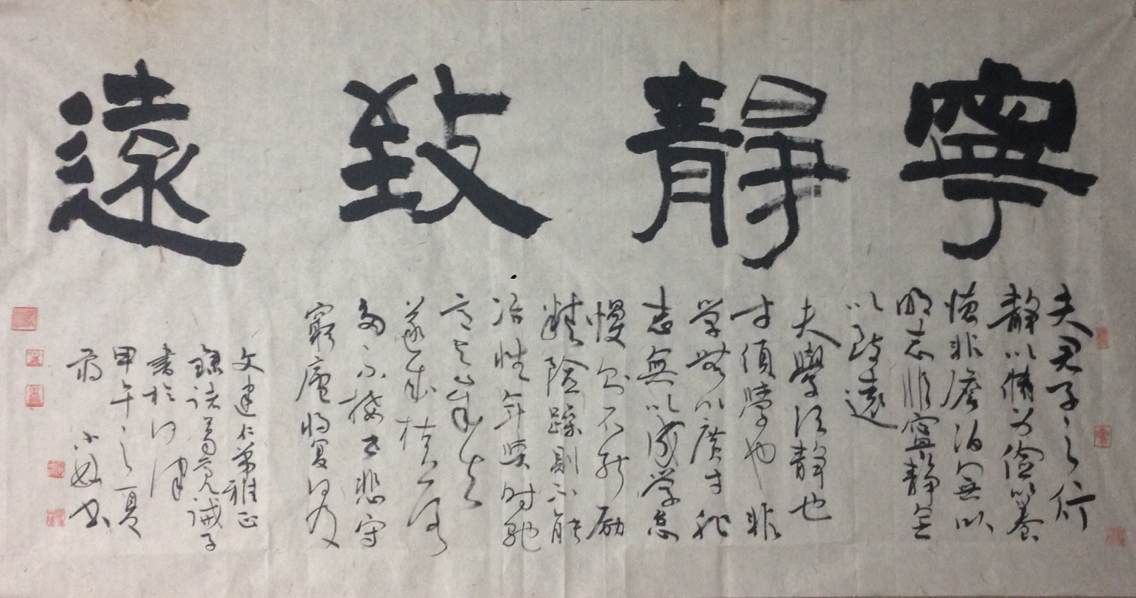 寧靜致遠
夫君子之行
静以脩身儉以養
德非澹泊無以
明志非寧静無
以致遠
夫學須静也
才須學也非
学無以廣才非
志無以成学怠
慢則不能勵
精險躁則不能
冶性年與時馳
意与歲去
遂成枯落
多不接世悲守
窮廬將復何及
文建仁弟雅正
錄諸葛亮誡子
書於津
甲午之夏
書